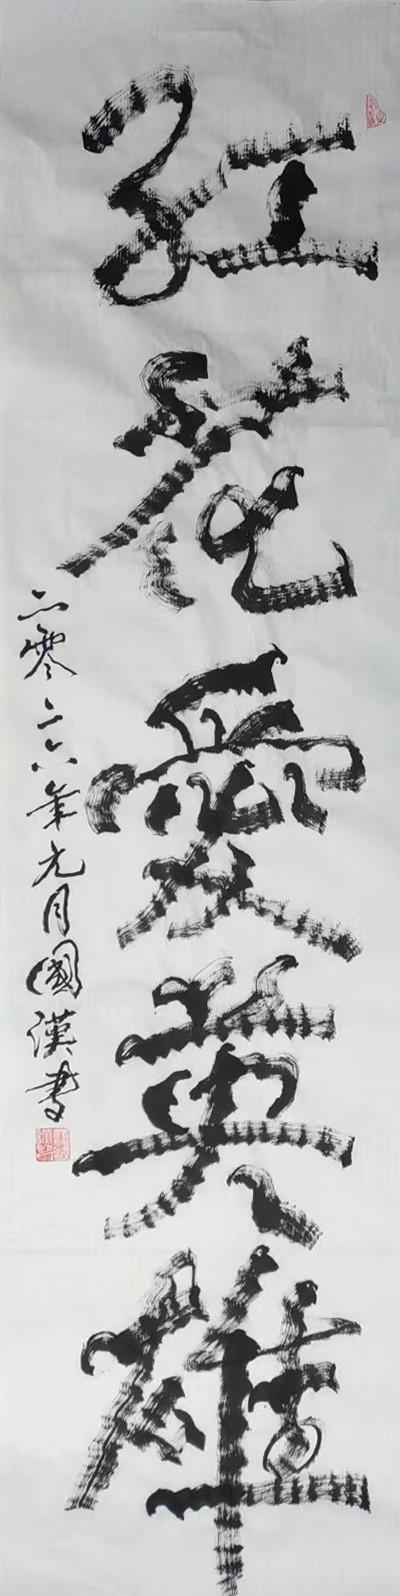 紅花愛英雄
二零二六年元月國漢書